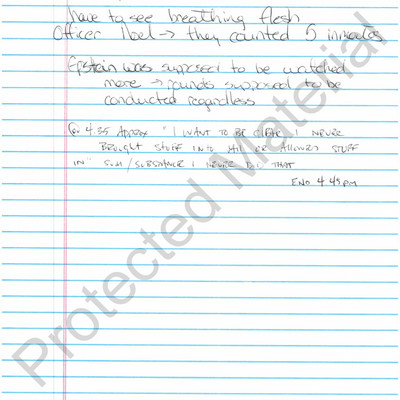 have to see breathing flesh
Officer Noel → they counted 5 inmates
Epstein was supposed to be watched
more → rounds supposed to be
conducted regardless
@ 4:35 Approx "I WANT TO BE CLEAR I NEVER
BROUGHT STUFF INTO HIU OR ALLOWED STUFF
IN" SUM/SUBSTANCE I NEVER DID THAT
END 4:49PM
Protected Material